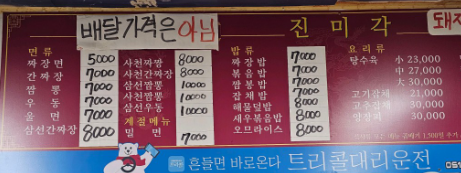 배달가격은 아님
진미각
돼지
면류
짜장면 5000
간짜장 7000
짬뽕 7000
우동 7000
울면 7000
삼선간짜장 8000
사천짜짱 8000
사천간짜장 8000
삼선짬뽕 10000
삼선짬뽕 10000
삼선우동 10000
계절메뉴
밀면 7000
밥류
짜장밥 7000
볶음밥 7000
짬뽕밥 8000
잡채밥 8000
해물덮밥 8000
새우볶음밥 8000
오므라이스 8000
요리류
탕수육 소 23,000
중 27,000
대 30,000
고기잡채 21,000
고추잡채 30,000
양장피 30,000
흔들면 바로온다 트리콜대리운전